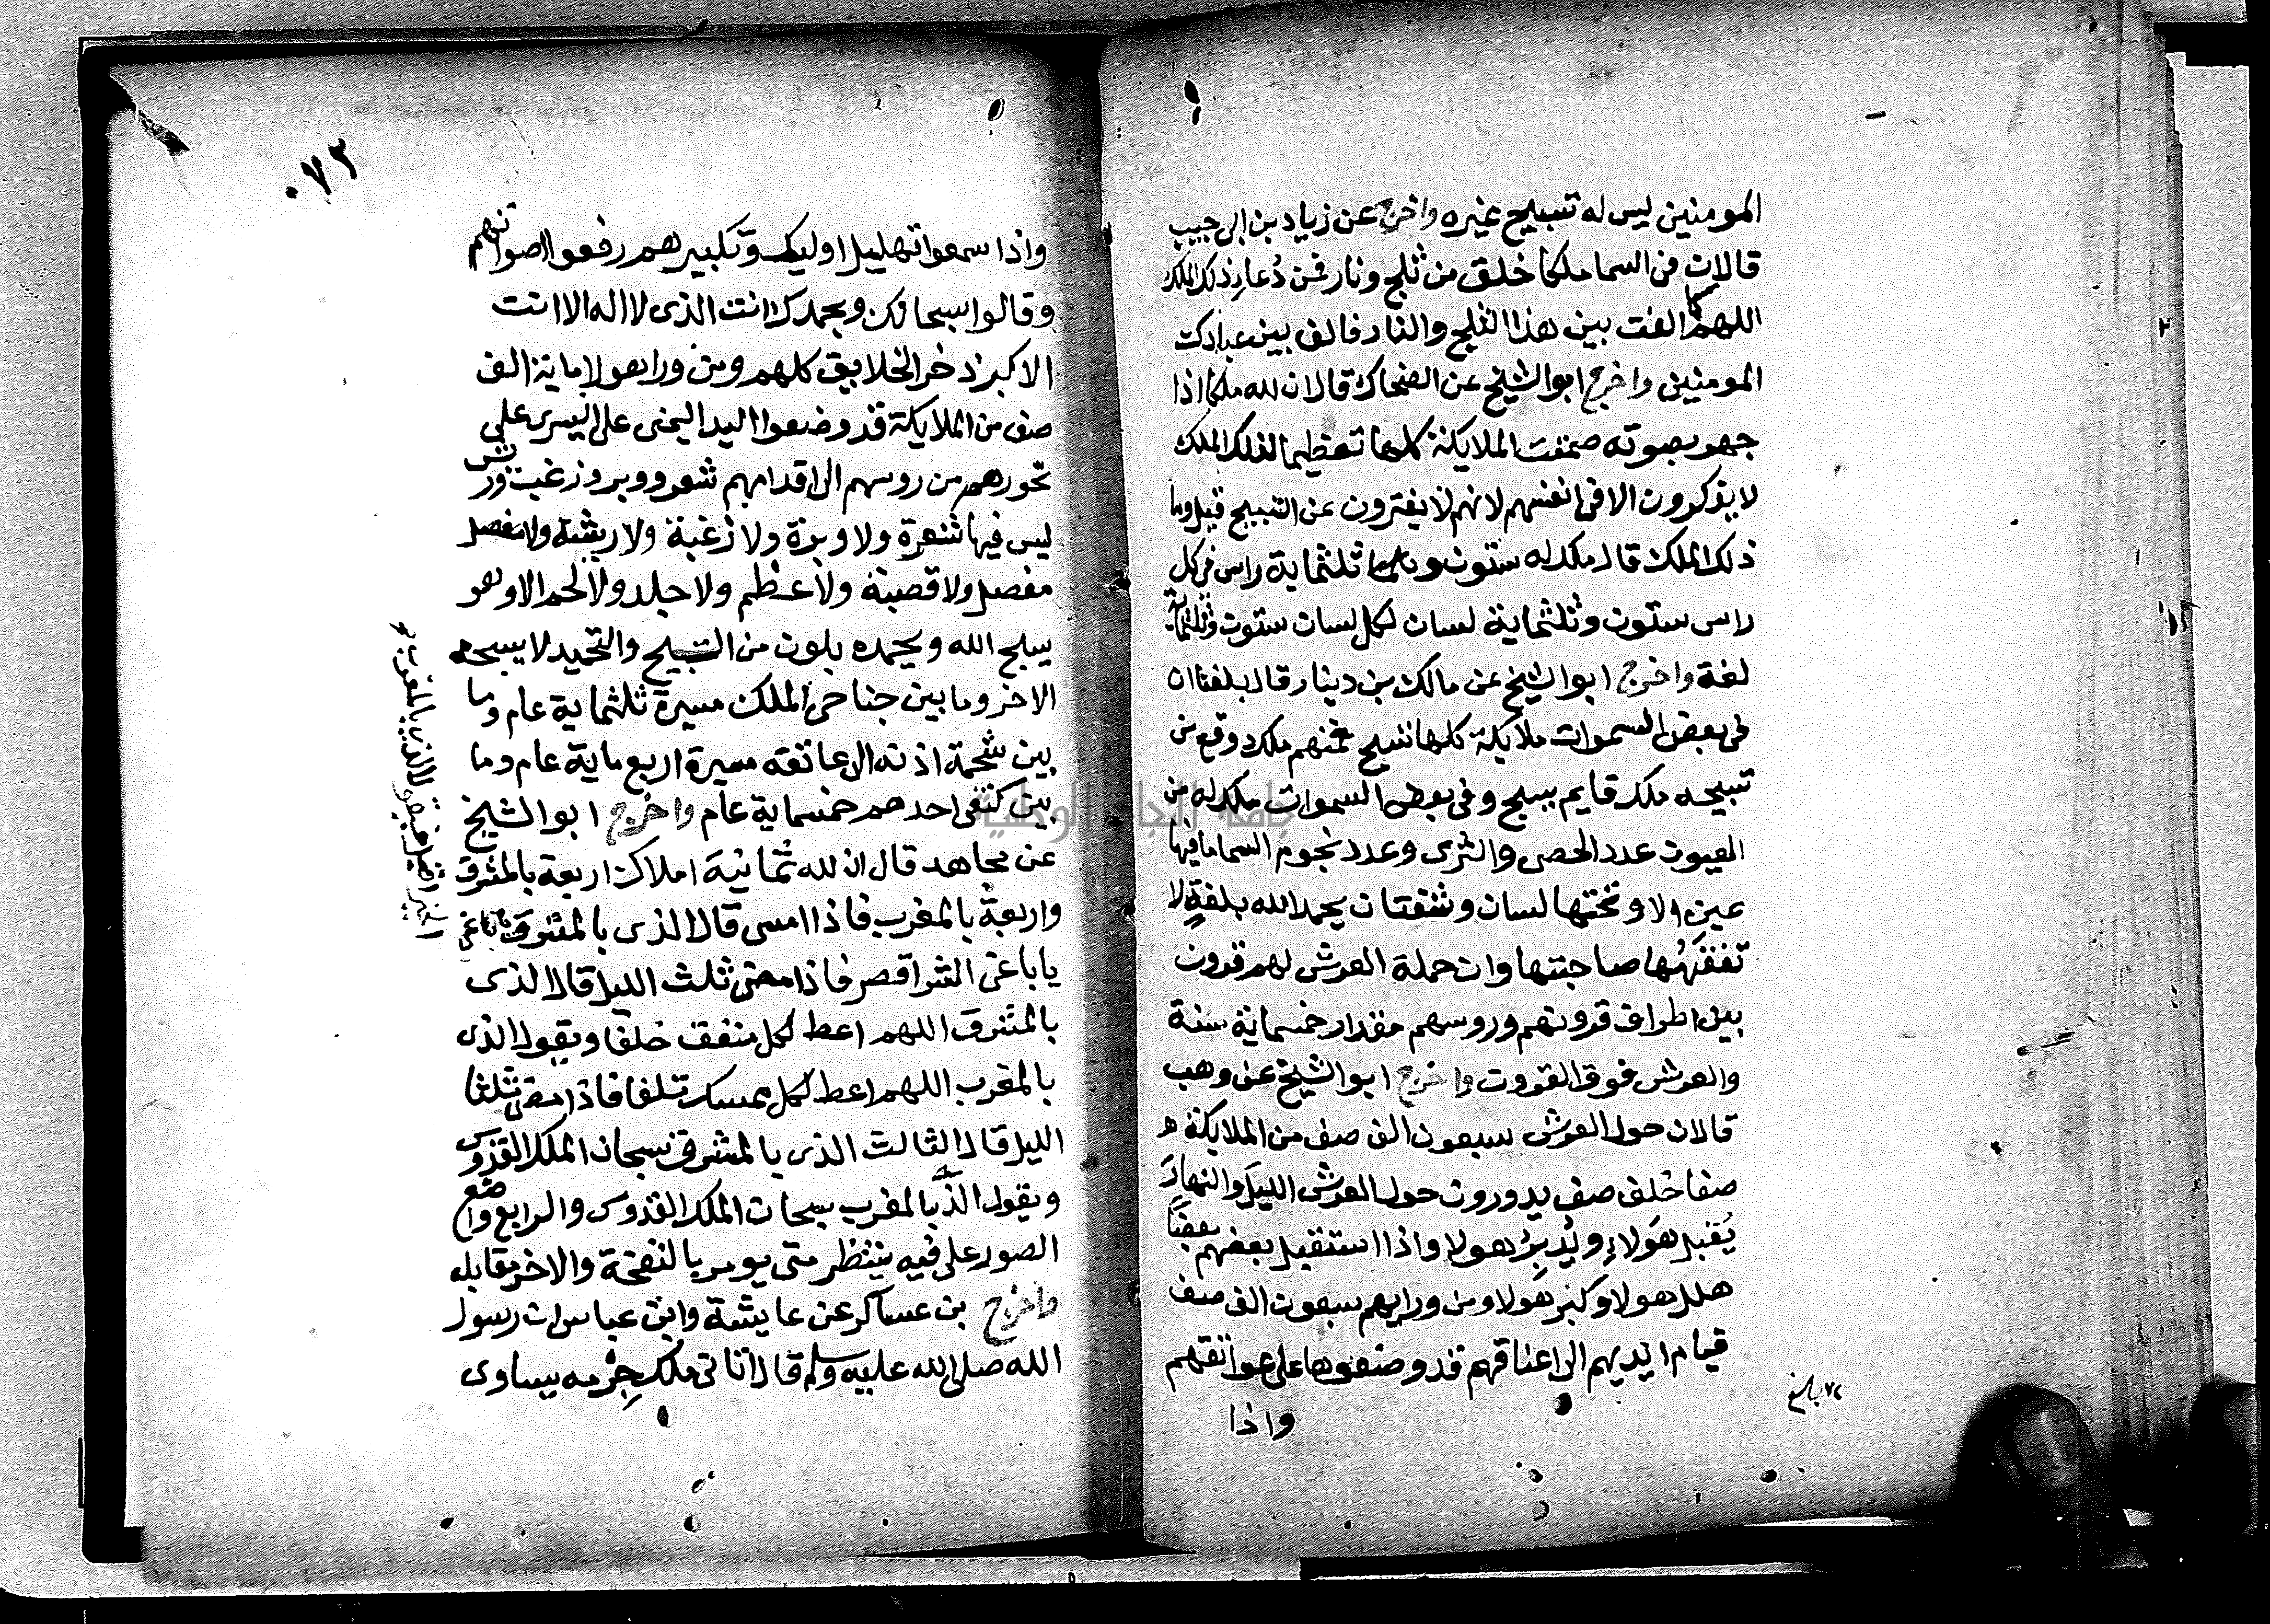 المومنين ليس له تسبيح غيره واخرج عن زياد بن ابى حبيب
قال ان فى السما ملكا خلق من ثلج ونار فمن دُعاءِ ذلك الملك
اللهم كما الفت بين هذا الثلج والنار فالف بين عبادك
المومنين واخرج ابو الشيخ عن الضحاك قال ان لله ملكا اذا
جهر بصوته صمتت الملايكة كلها تعظيما لذلك الملك
لا يذكرون الا فى انفسهم لانهم لا يفترون عن التسبيح قيل وما
ذلك الملك قال ملك له ستون وثلثماية راس فى كل
راس ستون وثلثماية لسان لكل لسان ستون وثلثماية
لغة واخرج ابو الشيخ عن مالك بن دينار قال بلغنا ان
فى بعض السموات ملايكة كلها تسبح فمنهم ملك وقع من
تسبيحه ملك قايم يسبح وفى بعض السموات ملك له من
العيون عدد الحصى والثرى وعدد نجوم السما ما فيها
عين الا وتحتها لسان وشفتان يحمد الله بلغةٍ لا
تفقهُها صاحبتها وان حملة العرش لهم قرون
بين اطراف قرونهم وروسهم مقدار خمسماية سنة
والعرش فوق القرون واخرج ابو الشيخ عن وهب
قال ان حول العرش سبعون الف صف من الملايكة
صفا خلف صف يدورون حول العرش الليلَ والنهارَ
يُقبل هَولاء ويُدبرُ هولا واذا استقبل بعضهم بعضًا
هلل هولا وكبر هَولا ومن ورايهم سبعون الف صف
قيام ايديهم الى اعناقهم قد وضعوها على عواتقهم
واذا
٧٢ بلغ
٠٧٢
واذا سمعوا تهليل اوليك وتكبيرهم رفعوا اصواتهم
وقالوا سبحانك وبحمدك انت الذى لا اله الا انت
الاكبر ذخر الخلايق كلهم ومن ورا هولا ماية الف
صف من الملايكة قد وضعوا اليد اليمنى على اليسرى على
نحورهم من روسهم الى اقدامهم شعر ووبر وزغب وريش
ليس فيها شعرة ولا وبرة ولا زغبة ولا ريشة ولا مفصل
مفصل ولا قصبة ولا عظم ولا جلد ولا لحم الا وهو
يسبح الله ويحمده بلون من التسبيح والتحميد لا يسبحه
الاخر وما بين جناحى الملك مسيرة ثلثماية عام وما
بين شحمة اذنه الى عاتقه مسيرة اربع ماية عام وما
بين كتفى احدهم خمسماية عام واخرج ابو الشيخ
عن مجاهد قال ان لله ثمانيَة املاك اربعة بالمشرق
واربعة بالمغرب فاذا امسى قال الذى بالمشرق
يا باغى الشر اقصر فاذا مضى ثلث الليل قال الذى
بالمشرق اللهم اعط لكل منفق خلفا ويقول الذى
بالمغرب اللهم اعط لكل ممسك تلفا فاذا مضى ثلثا
الليل قال الثالث الذى بالمشرق سبحان الملك القدوس
ويقول الذى بالمغرب سبحان الملك القدوس والرابع واضع
الصور على فيه ينتظر متى يومر بالنفخة والاخر مقابله
واخرج بن عساكر عن عايشة وابن عباس ان رسول
الله صلى الله عليه وسلم قال اتانى ملك جِرْمه يساوى
جامعة النجاح الوطنية